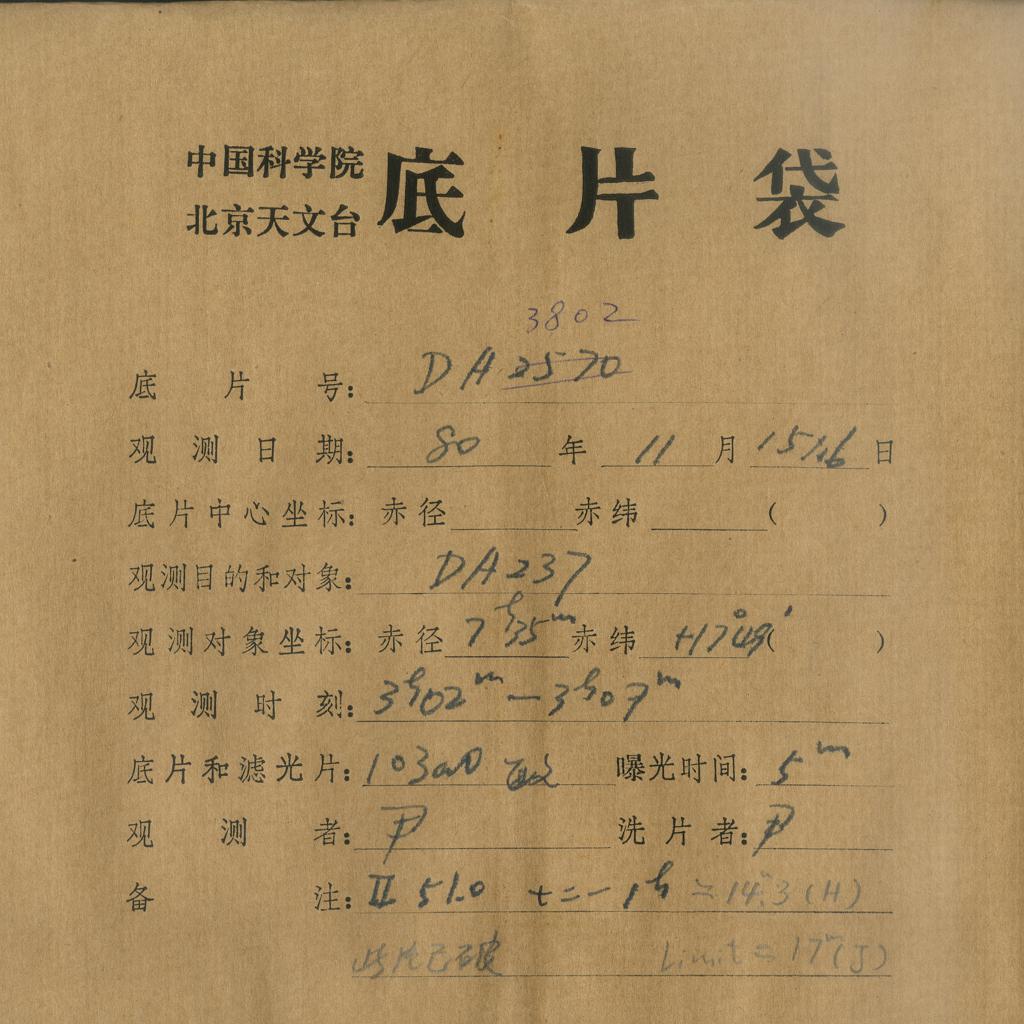 中国科学院
北京天文台
底片袋
3802
底片号: DA 2570
观测日期: 80 年 11 月 15/16 日
底片中心坐标: 赤径 赤纬 ( )
观测目的和对象: DA237
观测对象坐标: 赤径 7h35m 赤纬 +17°49′ ( )
观测时刻: 3h02m — 3h07m
底片和滤光片: 103aO 曝光时间: 5m
观测者: 尹 洗片者: 尹
备注: II 51.0 t=-1h ≈14m.3(H)
此片已破 Limit = 17m(J)